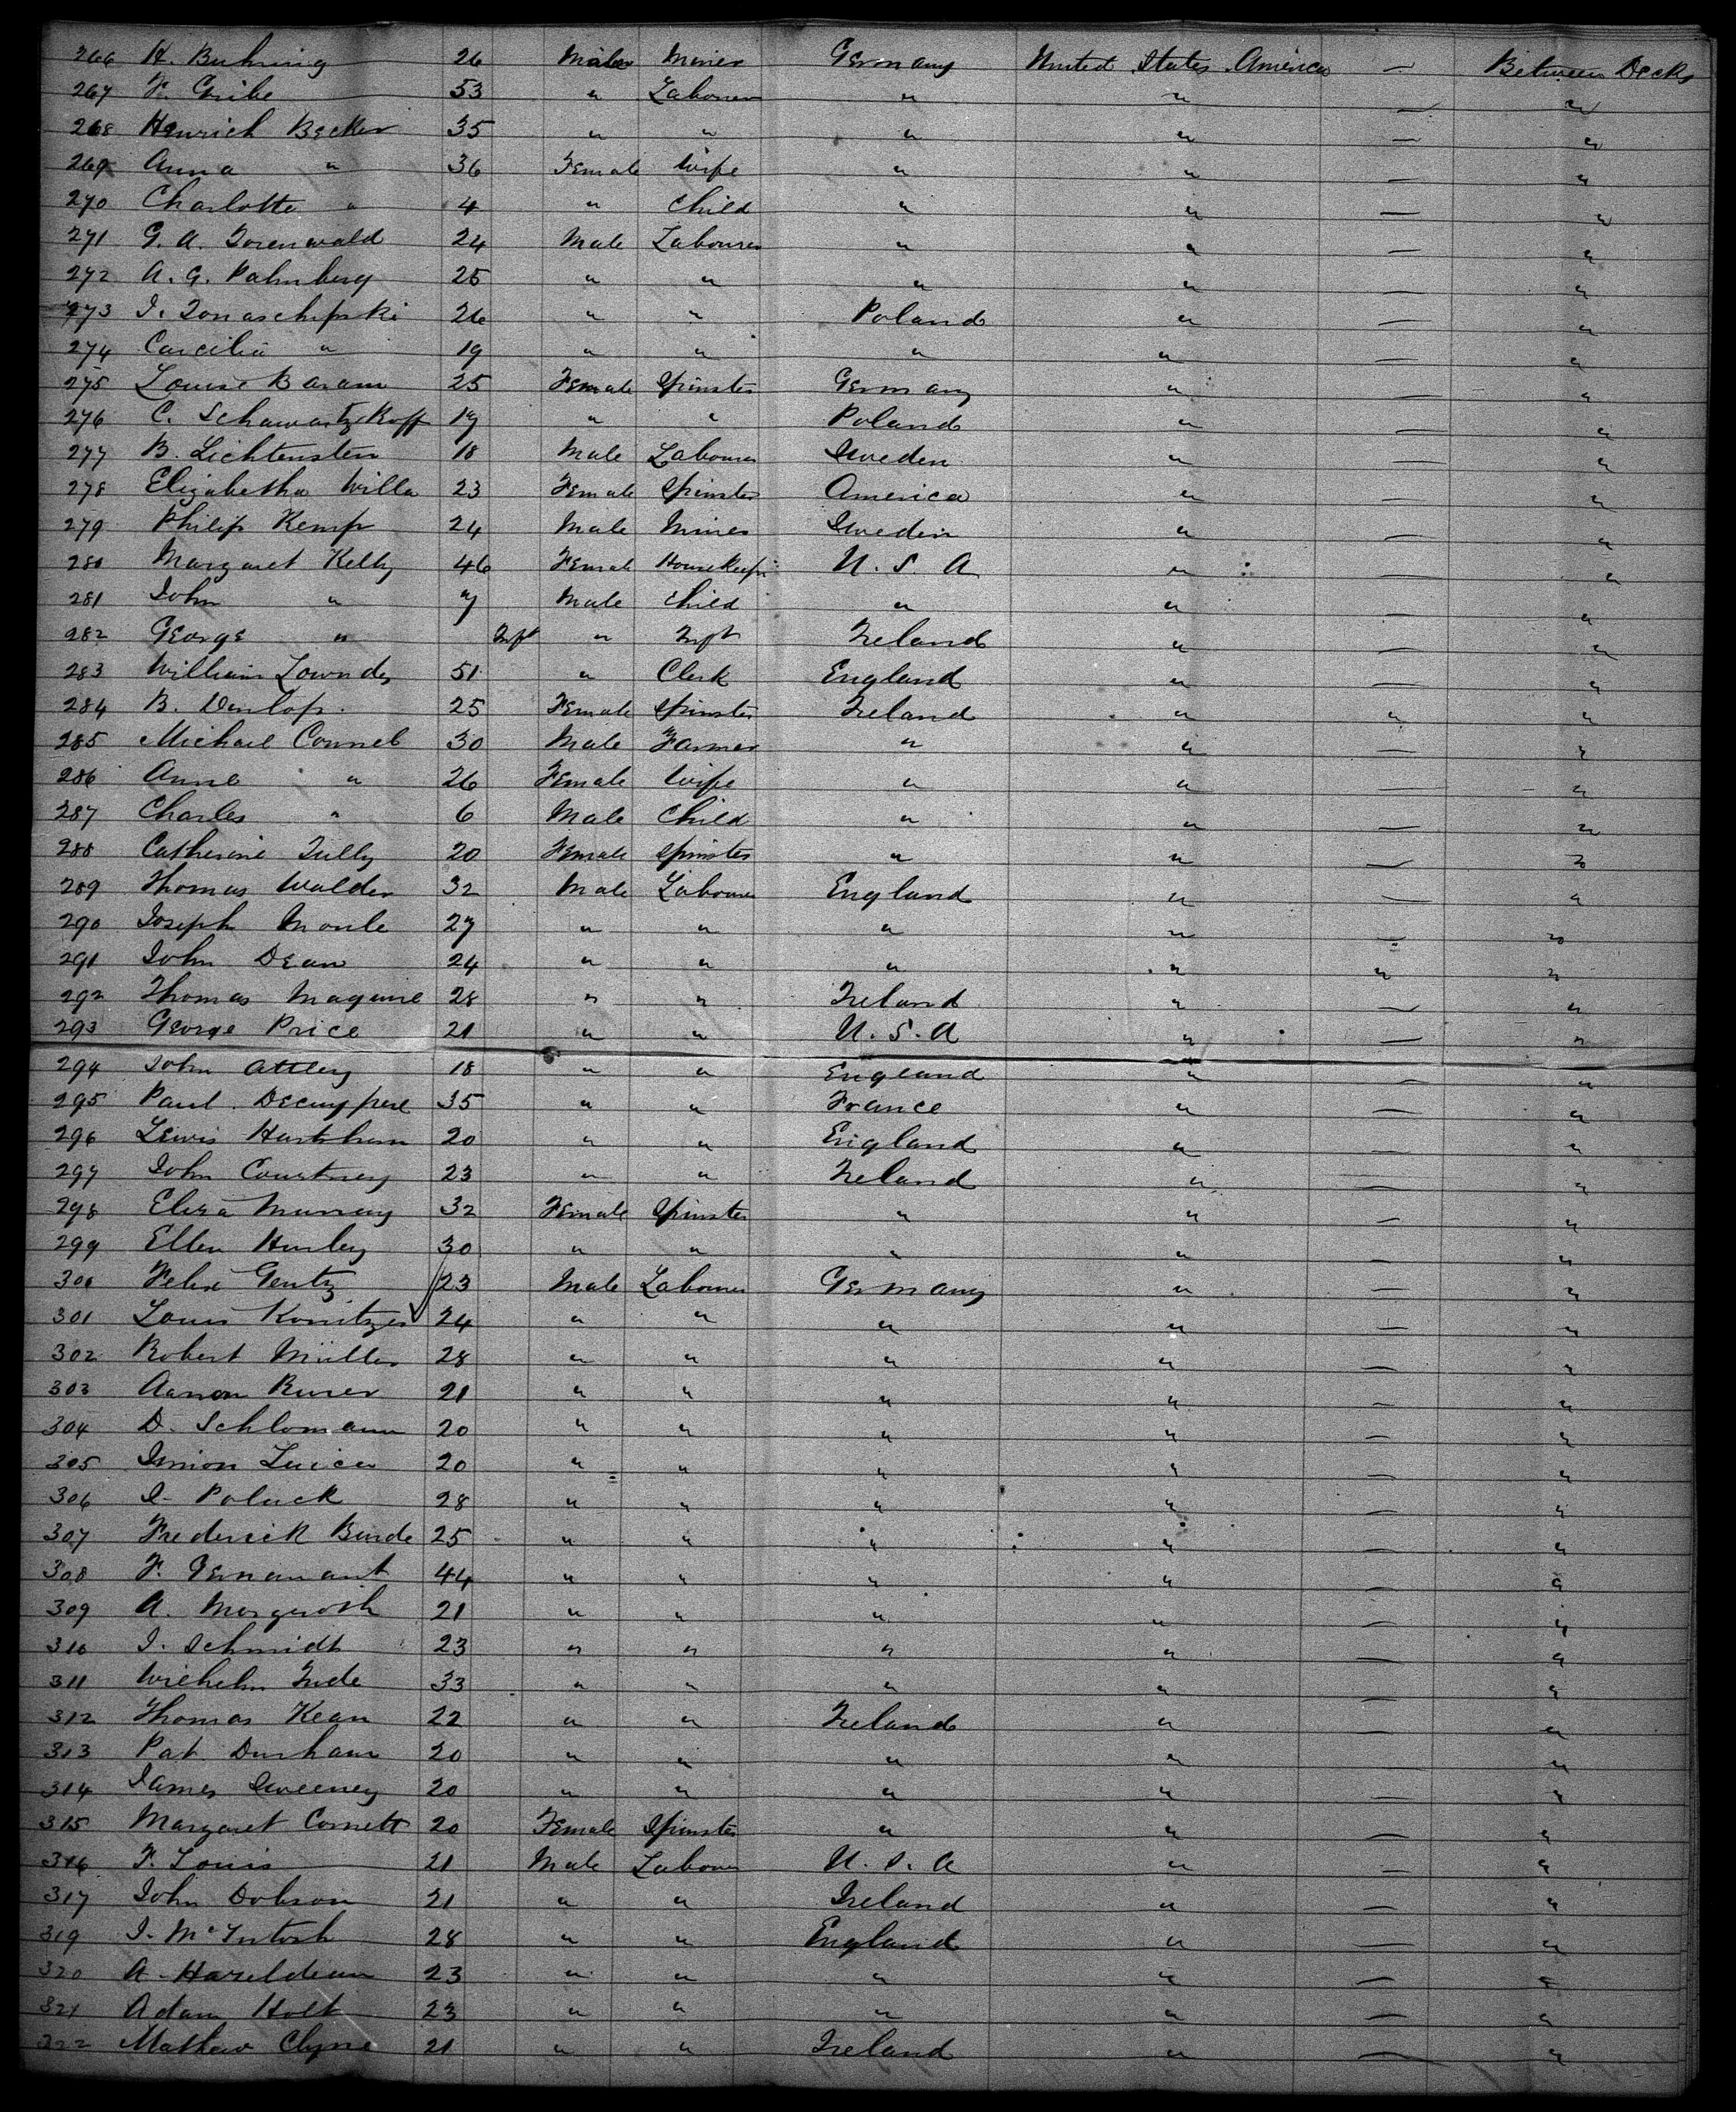 266 H. Buhring 26 Male Miner Germany United States America — Between Decks
267 F. Gribe 53 " Labourer " " — "
268 Henrich Becker 35 " " " " — "
269 Anna " 36 Female Wife " " — "
270 Charlotte " 4 " Child " " — "
271 G. A. 24 Male Labourer " " — "
272 A. G. Palmberg 25 " " " " — "
273 I. 26 " " Poland " — "
274 " 19 " " " " — "
275 Louise Baram 25 Female Spinster Germany " — "
276 C. Schawartzkoff 19 " " Poland " — "
277 B. Lichtensten 18 Male Labourer Sweden " — "
278 Elizabetha Willa 23 Female Spinster America " — "
279 Philip Kemp 24 Male Miner Sweden " — "
280 Margaret Kelly 46 Female Housekeepr U. S. A " — "
281 John " 7 Male Child " " — "
282 George " Inft " Inft Ireland " — "
283 William Lowndes 51 " Clerk England " — "
284 B. Dunlop. 25 Female Spinster Ireland " " "
285 Michael Connel 30 Male Farmer " " — "
286 Anne " 26 Female Wife " " — "
287 Charles " 6 Male Child " " — "
288 Catherine Tully 20 Female Spinster " " — "
289 Thomas Walder 32 Male Labourer England " — "
290 Joseph Moule 27 " " " " — "
291 John Dean 24 " " " " " "
292 Thomas Maguire 28 " " Ireland " — "
293 George Price 21 " " U. S. A " — "
294 John Attley 18 " " England " — "
295 Paul 35 " " France " — "
296 Lewis 20 " " England " — "
297 John Courtney 23 " " Ireland " — "
298 Eliza Murray 32 Female Spinster " " — "
299 Ellen Hurley 30 " " " " — "
300 Felix Gentz 23 Male Labourer Germany " — "
301 Louis Konitzer 24 " " " " — "
302 Robert Müller 28 " " " " — "
303 Aaron 21 " " " " — "
304 D. Schlomann 20 " " " " — "
305 20 " " " " — "
306 I. Poluck 28 " " " " — "
307 Frederick Burde 25 " " " " — "
308 F. 44 " " " " — "
309 A. Morgeroth 21 " " " " — "
310 I. Schmidt 23 " " " " — "
311 Wilhelm 33 " " " " — "
312 Thomas Kean 22 " " Ireland " — "
313 Pat Durham 20 " " " " — "
314 James Sweeney 20 " " " " — "
315 Margaret Cornett 20 Female Spinster " " — "
316 F. Louis 21 Male Labourer U. S. A " — "
317 John Dobson 21 " " Ireland " — "
319 I. McIntosh 28 " " England " — "
320 A. Hazeldean 23 " " " " — "
321 Adam Holt 23 " " " " — "
322 Mathew Clyne 21 " " Ireland " — "